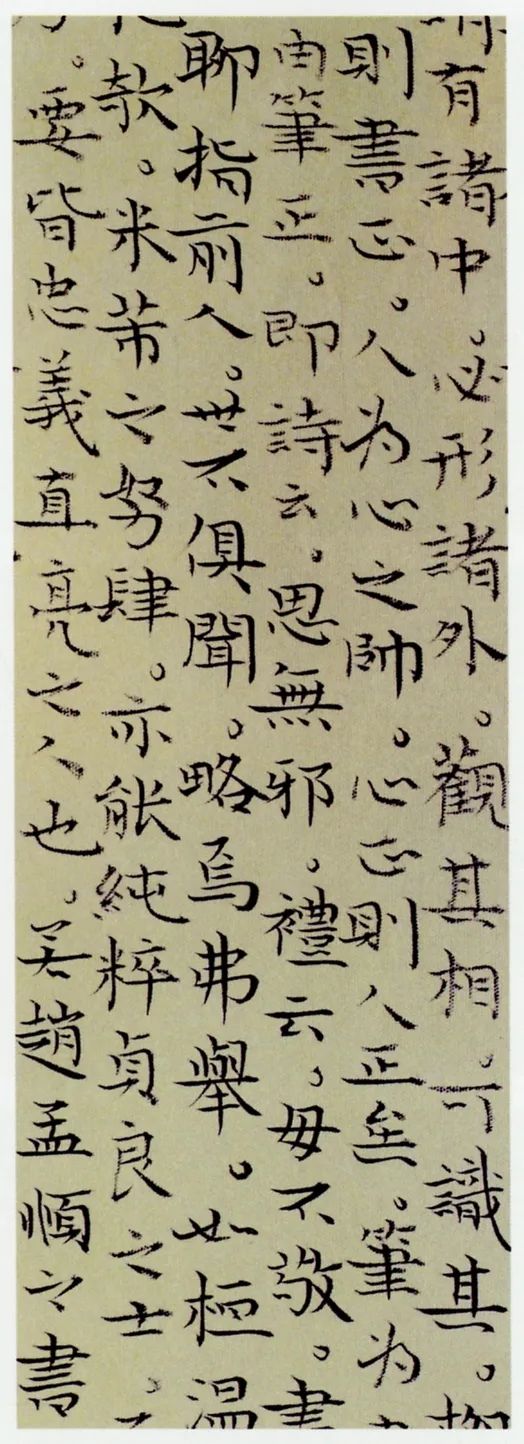 有諸中。必形諸外。觀其相。可識其。
則書正。人為心之帥。心正則人正矣。筆為
由筆正。即詩云。思無邪。禮云。毋不敬。書
聊指前人。世不俱聞。略焉弗舉。如桓溫
欹。米芾之努肆。亦能純粹貞良之士。
。要皆忠義直亮之人也。若趙孟順之書